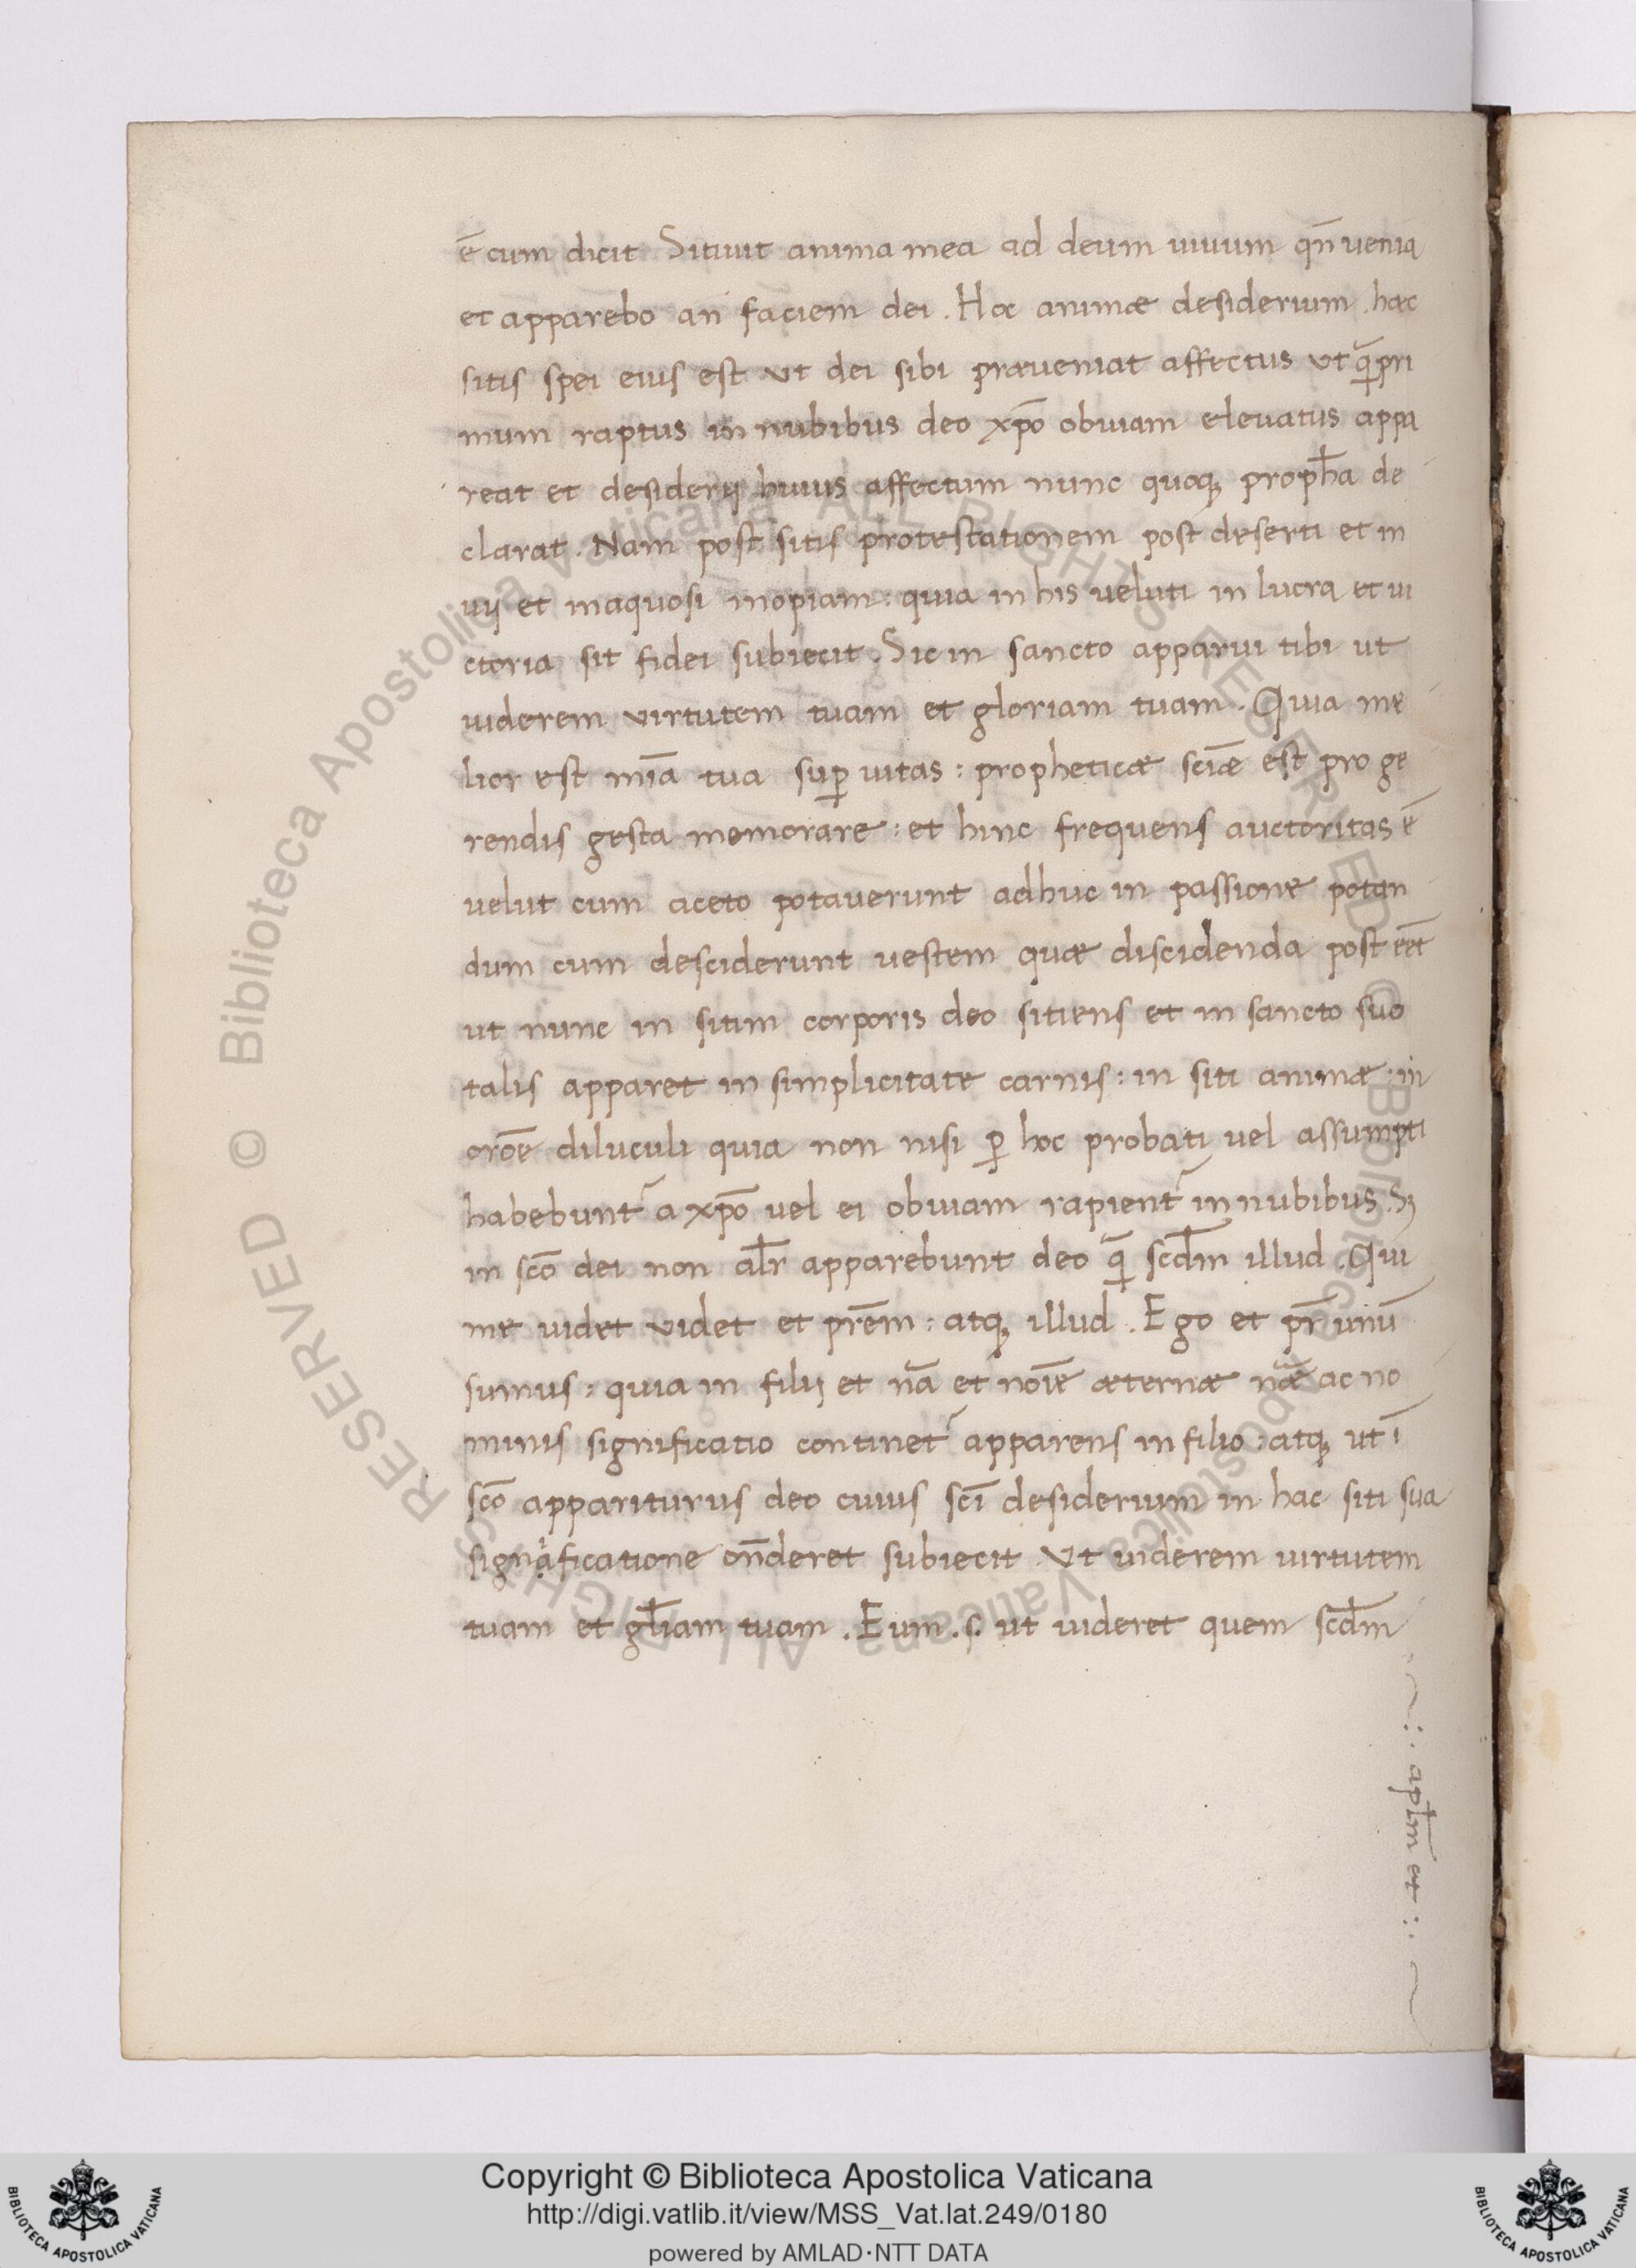 ē cum dicit Sitiuit anima mea ad deum uiuum qn̄ uenia
et apparebo an̄ faciem dei . Hæc animæ desiderium . hæc
sitis spei eius est vt dei sibi præueniat affectus vt q̄pri
mum raptus in nubibus deo xp̄o obuiam eleuatus appa
reat et desiderij huius affectum nunc quoq; prophꝉa de
clarat . Nam post sitis protestationem post deserti et in
uij et inaquosi inopiam : quia in his veluti in lucra et ui
ctoria sit fidei subiecit . Sic in sancto apparui tibi ut
uiderem virtutem tuam et gloriam tuam . Quia me
lior est mīa tua suꝑ uitas : propheticæ scīæ est pro ge
rendis gesta memorare : et hinc frequens auctoritas ē
velut cum aceto potauerunt adhuc in passione potan
dum cum desciderunt uestem quæ discidenda post eēt
ut nunc in sitim corporis deo sitiens et in sancto suo
talis apparet in simplicitate carnis : in siti animæ : in
orōe diluculi quia non nisi ꝑ hoc probati vel assumpti
habebunt᷑ a xp̄o vel ei obuiam rapient᷑ in nubibus . Sꝫ
in scō dei non alr̄ apparebunt deo q̄ scd̄m illud . Qui
me uidet videt et prēm : atq; illud . Ego et pr̄ unū
sumus : quia in filij et nā et noīe æternæ nāe ac no
minis significatio continet᷑ apparens in filio : atq; ut ī
scō appariturus deo cuius scī desiderium in hac siti sua
significatione on̄deret subiecit . Vt uiderem uirtutem
tuam et glīam tuam . Eum . s. ut uideret quem scd̄m
: . apl̄m et : .
Copyright © Biblioteca Apostolica Vaticana
http://digi.vatlib.it/view/MSS_Vat.lat.249/0180
powered by AMLAD·NTT DATA
BIBLIOTECA APOSTOLICA VATICANA
BIBLIOTECA APOSTOLICA VATICANA
© Biblioteca Apostolica Vaticana ALL RIGHTS RESERVED © Biblioteca Apostolica Vaticana ALL RIGHTS RESERVED